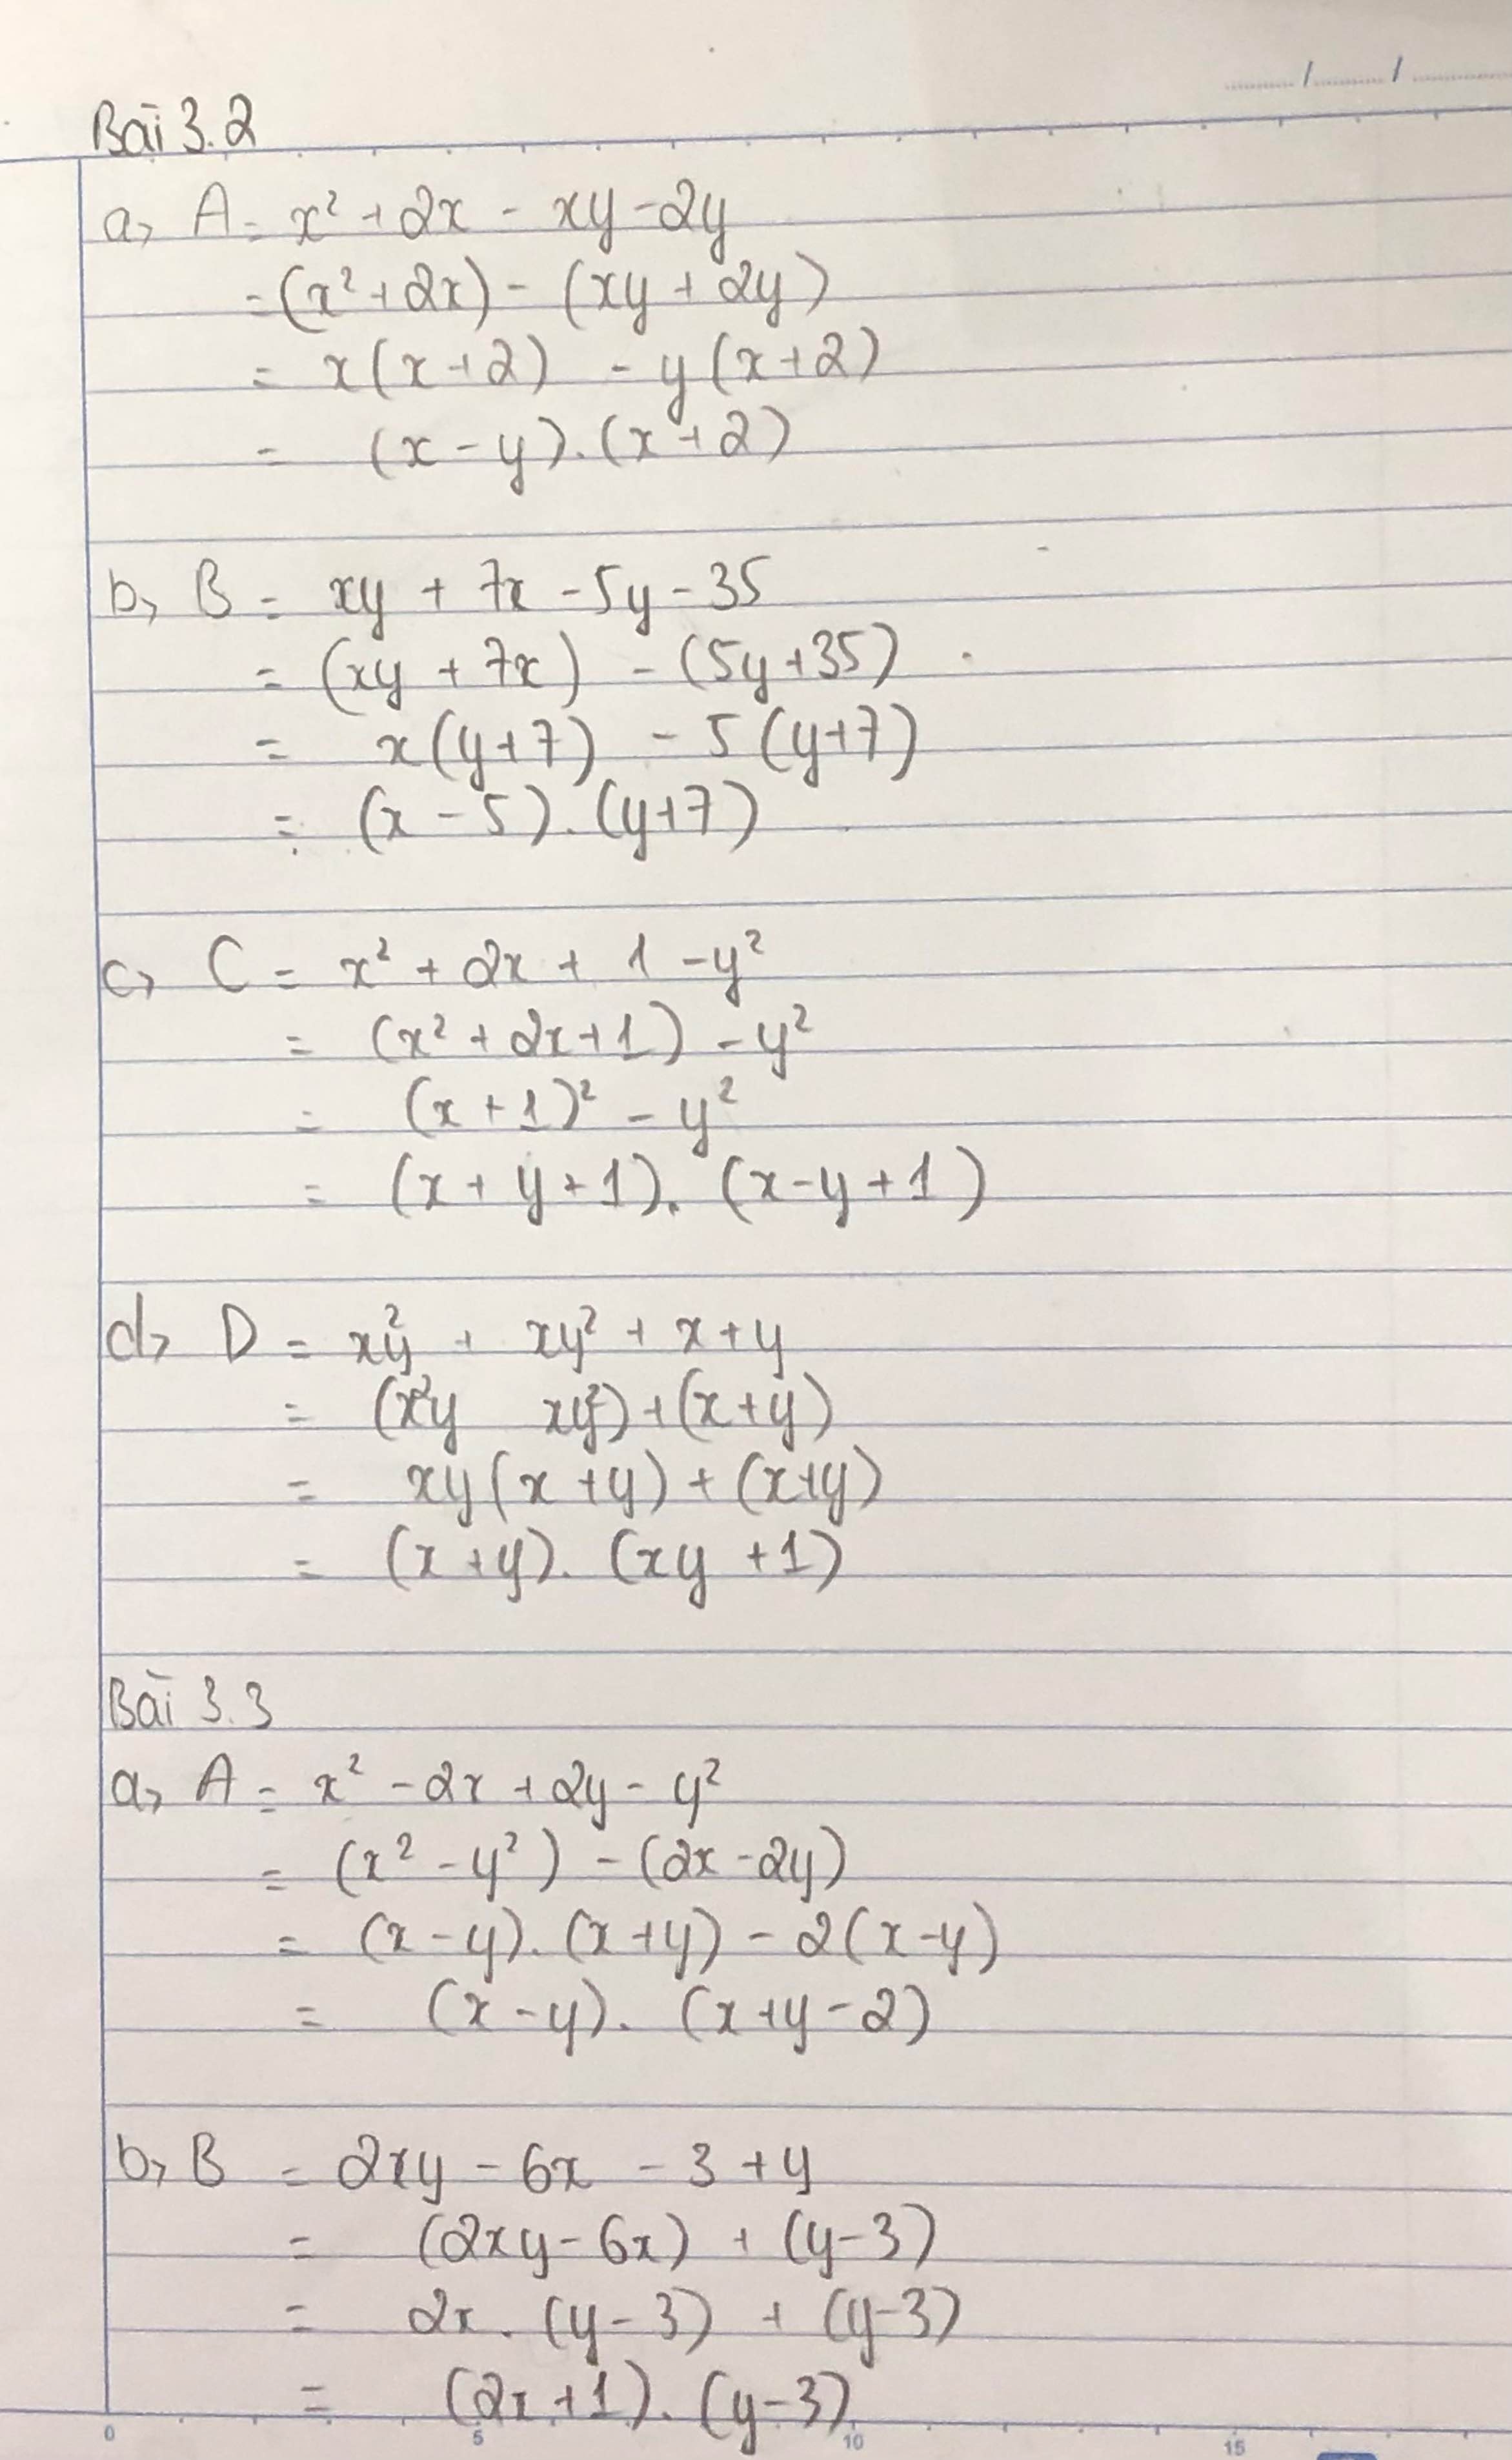 ...../...../.....
Bài 3.2
a, A = x² + 2x - xy - 2y
= (x² + 2x) - (xy + 2y)
= x(x + 2) - y(x + 2)
= (x - y).(x + 2)
b, B = xy + 7x - 5y - 35
= (xy + 7x) - (5y + 35)
= x(y + 7) - 5(y + 7)
= (x - 5).(y + 7)
c, C = x² + 2x + 1 - y²
= (x² + 2x + 1) - y²
= (x + 1)² - y²
= (x + y + 1).(x - y + 1)
d, D = x²y + xy² + x + y
= (x²y xy²) + (x + y)
= xy(x + y) + (x + y)
= (x + y).(xy + 1)
Bài 3.3
a, A = x² - 2x + 2y - y²
= (x² - y²) - (2x - 2y)
= (x - y).(x + y) - 2(x - y)
= (x - y).(x + y - 2)
b, B = 2xy - 6x - 3 + y
= (2xy - 6x) + (y - 3)
= 2x.(y - 3) + (y - 3)
= (2x + 1).(y - 3)
0 5 10 15